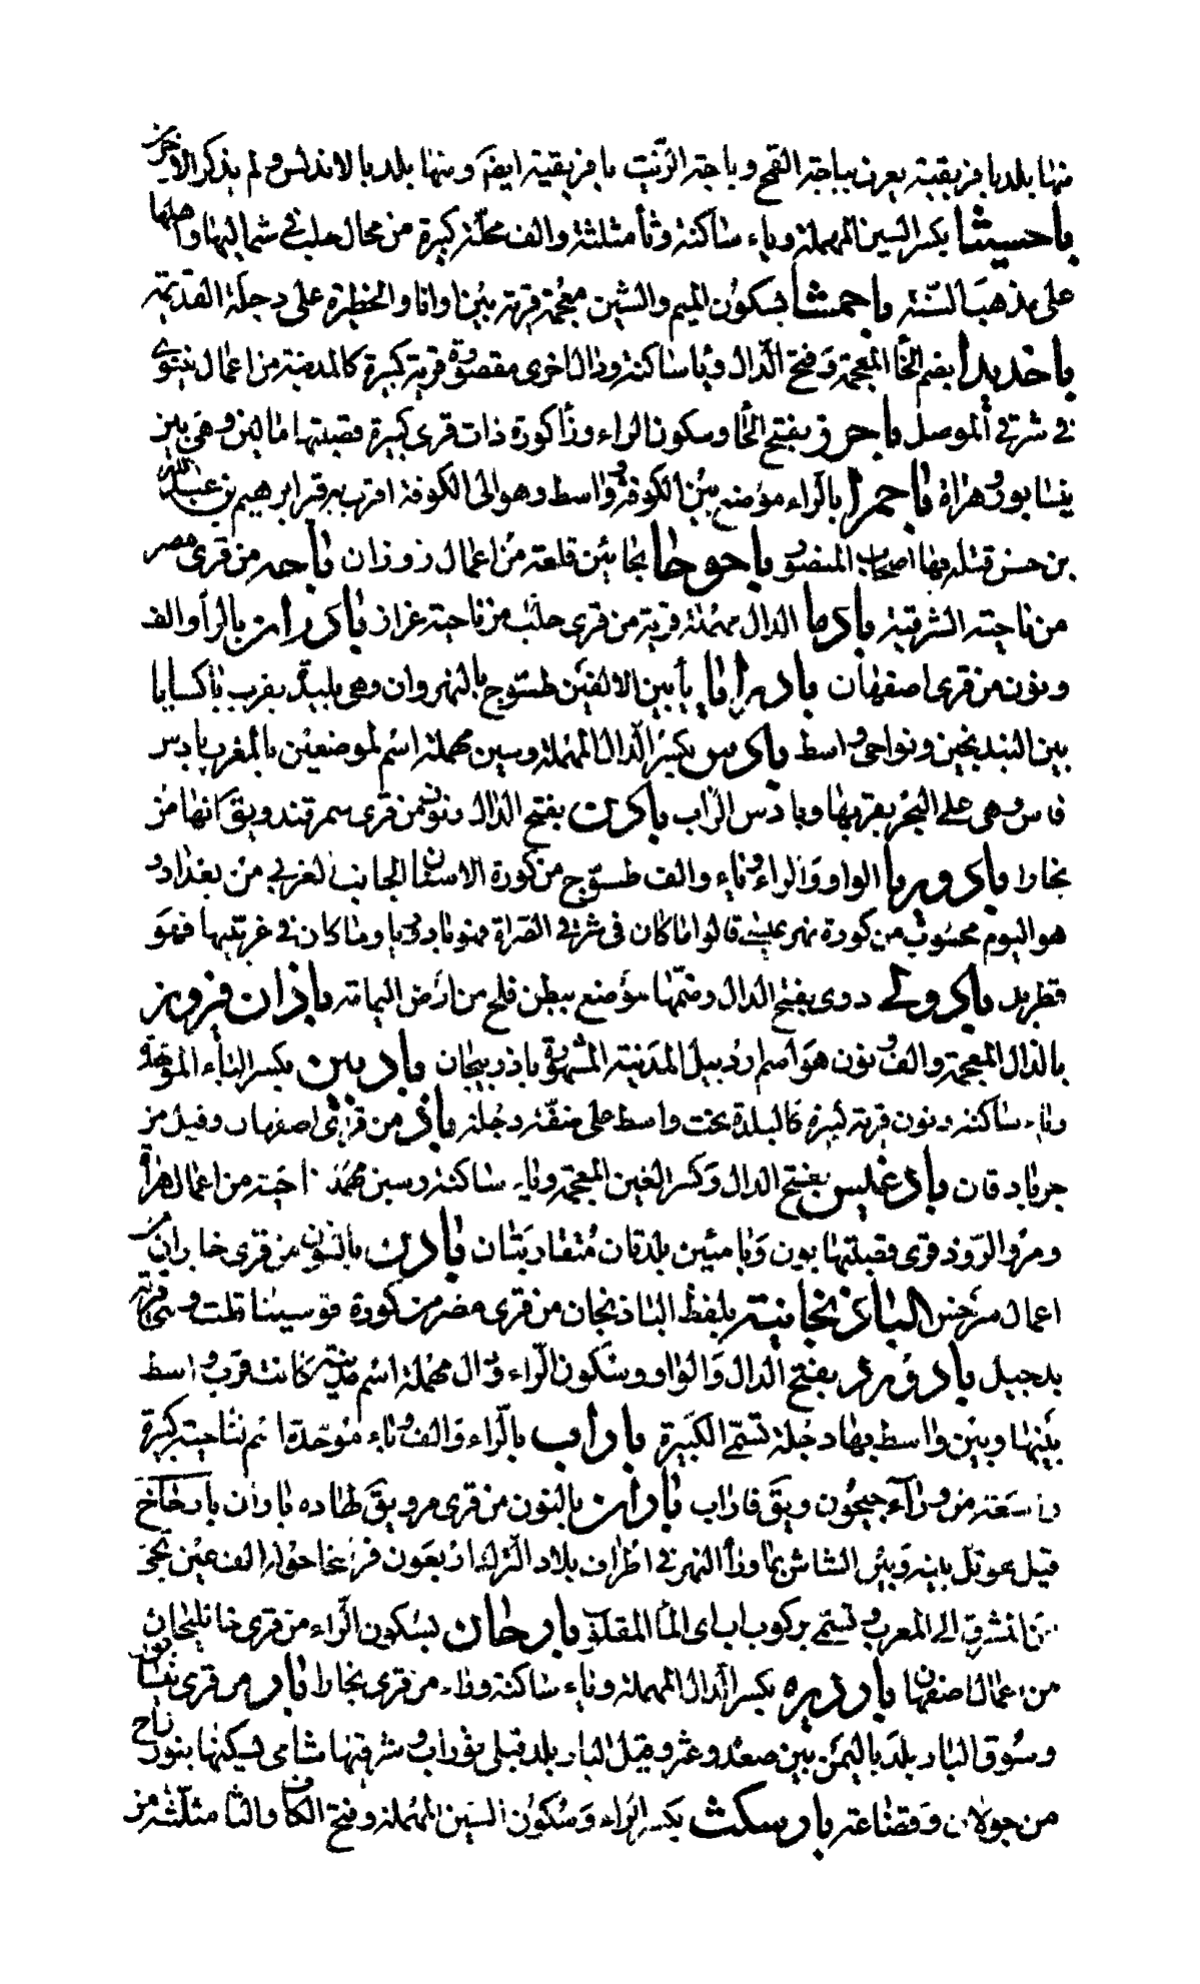 منها بلد بافريقية يعرف بباجة القمح وباجة الزيت بافريقية ايضا ومنها بلد بالاندلس ولم يذكر الاخر
باحسيثا بكسر السين المهملة وياء ساكنة وثا مثلثة والف محلة كبيرة من محال حلب في شماليها واهلها
على مذهب السنة باحمشا بسكون الميم والشين معجمة قرية بين اوانا والحظيرة على دجلة القديمة
باخديدا بضم الخا المعجمة وفتح الدال ويا ساكنة ودال اخرى مقصورة قرية كبيرة كالمدينة من اعمال نينوى
في شرقي الموصل باخرز بفتح الخا وسكون الراء وزا كورة ذات قرى كبيرة قصبتها مالين وهي بين
نيسابور وهراة باخمرا بالراء موضع بين الكوفة وواسط وهو الى الكوفة اقرب به قبر ابرهيم بن عبد الله
بن حسن قتله بها اصحاب المنصور باخوخا بخائين قلعة من اعمال زوزان باخه من قرى مصر
من ناحية الشرقية بادما الدال مهملة قرية من قرى حلب من ناحية عزاز بادران بالرا والف
ونون من قرى اصفهان بادرايا يا بين الالفين طسوج بالنهروان وهي بليدة بقرب باكسايا
بين البندنيجين ونواحي واسط بادس بكسر الدال المهملة وسين مهملة اسم لموضعين بالمغرب بادس
فاس وهي على البحر بقربها وبادس الزاب بادن بفتح الدال ونون من قرى سمرقند ويق انها من
بخارا بادوريا الواو والراء وياء والف طسوج من كورة الاستان الجانب الغربي من بغداد و
هو اليوم محسوب من كورة نهر عيسى قالوا ما كان في شرقي الصراة فهو بادوريا وما كان في غربيها فهو
قطربل بادولى روى بفتح الدال وضمها موضع ببطن فلج من ارض اليمامة باذان فيروز
بالذال المعجمة والف ونون هو اسم اردبيل المدينة المشهورة باذربيجان باذبين بكسر الباء الموحدة
وياء ساكنة ونون قرية كبيرة كالبلدة تحت واسط على ضفة دجلة باذ من قرى اصفهان وقيل من
جرباذقان باذغيس بفتح الدال وكسر الغين المعجمة وياء ساكنة وسين مهملة ناحية من اعمال هراة
ومرو الروذ قرى قصبتها بون وباميين بلدتان متقاربتان باذن بالنون من قرى خابران من
اعمال سرخس الباذنجانية بلفظ الباذنجان من قرى مصر من كورة قوسينا قلت وسمي قرية
بدجيل باذورد بفتح الدال والواو وسكون الراء ودال مهملة اسم مدينة كانت قرب واسط
بينها وبين واسط بها دجلة تسمى الكبيرة باراب بالراء والف وباء موحدة اسم ناحية كبيرة
واسعة من وراء جيحون ويق فاراب باران بالنون من قرى مرو يق لها ده باران بارخاخ
قيل هو تل بينه وبين الشاش بما ورا النهر في اطراف بلاد الترك اربعون فرسخا حوله الف عين تجي
من المشرق الى المغرب وتسمى بركوب اب اى الما المقلوب بارجان بسكون الراء من قرى خانلنجان
من اعمال اصفهان بارديزه بكسر الدال المهملة وياء ساكنة وزاء من قرى بخارا بار من قرى نيسابور
وسوق البار بلد باليمن بين صعده وعثر وقيل البار بلد قبلي توراب وشرقيها شامي يسكنها بنو رزاح
من جولان وقضاعة بارسكث بكسر الراء وسكون السين المهملة وفتح الكاف والثا مثلثة من